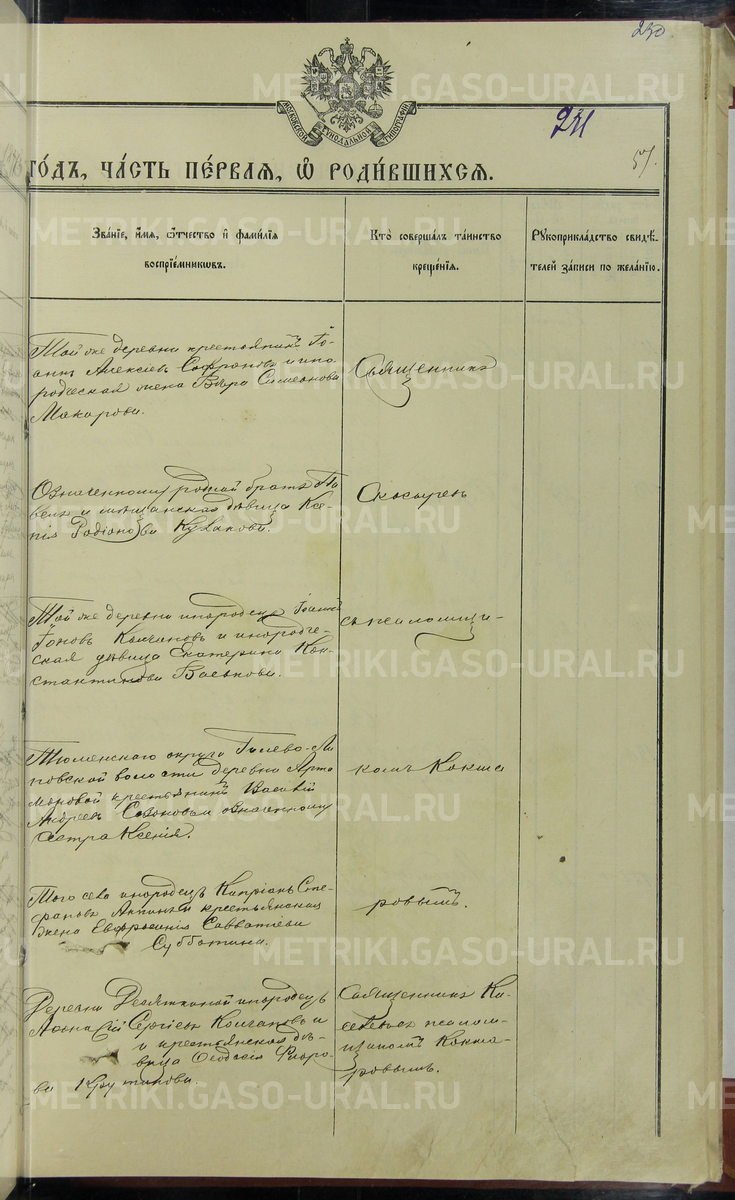 250
241
57.
МОСКОВСКОЙ СѴНОДАЛЬНОЙ ТИПОГРАФІИ
ГОДЪ, ЧАСТЬ ПЕРВАЯ, Ѡ РОДИВШИХСЯ.
Званіе, имя, ѻтчество и фамилія
воспріемникѡвъ.
Кто совершалъ таинство
крещенія.
Рукоприкладство свидѣ-
телей записи по желанію.
Той же деревни крестьянинъ Іо-
аннъ Алексѣевъ Сафоновъ и ино-
родческая жена Вѣра Симеонова
Макарова.
Священникъ
Означенному родной братъ Па-
велъ и мѣщанская дѣвица Ксе-
нія Родіонова Кулакова.
Скосыревъ
Той же деревни инородецъ Іоаннъ
Іоновъ Колчановъ и инородче-
ская дѣвица Екатерина Кон-
стантинова Васькова.
съ псаломщи-
Тюменскаго округа Гилево-Ли-
повской волости деревни Арта
мановой крестьянинъ Василій
Андреевъ Созоновъ и означенному
сестра Ксенія.
комъ Кокша
Того села инородецъ Кипріанъ Сте-
фановъ и крестьянская
жена Евфросинія Савватіева
Субботина.
ровымъ.
Деревни Десяткиной инородецъ
Аѳанасій Сергіевъ Колчановъ и
и крестьянская дѣ-
вица Ѳеодосія Флоро-
ва Крутикова.
Священникъ
псалом-
щикомъ Кокша-
ровымъ.
METRIKI.GASO-URAL.RU